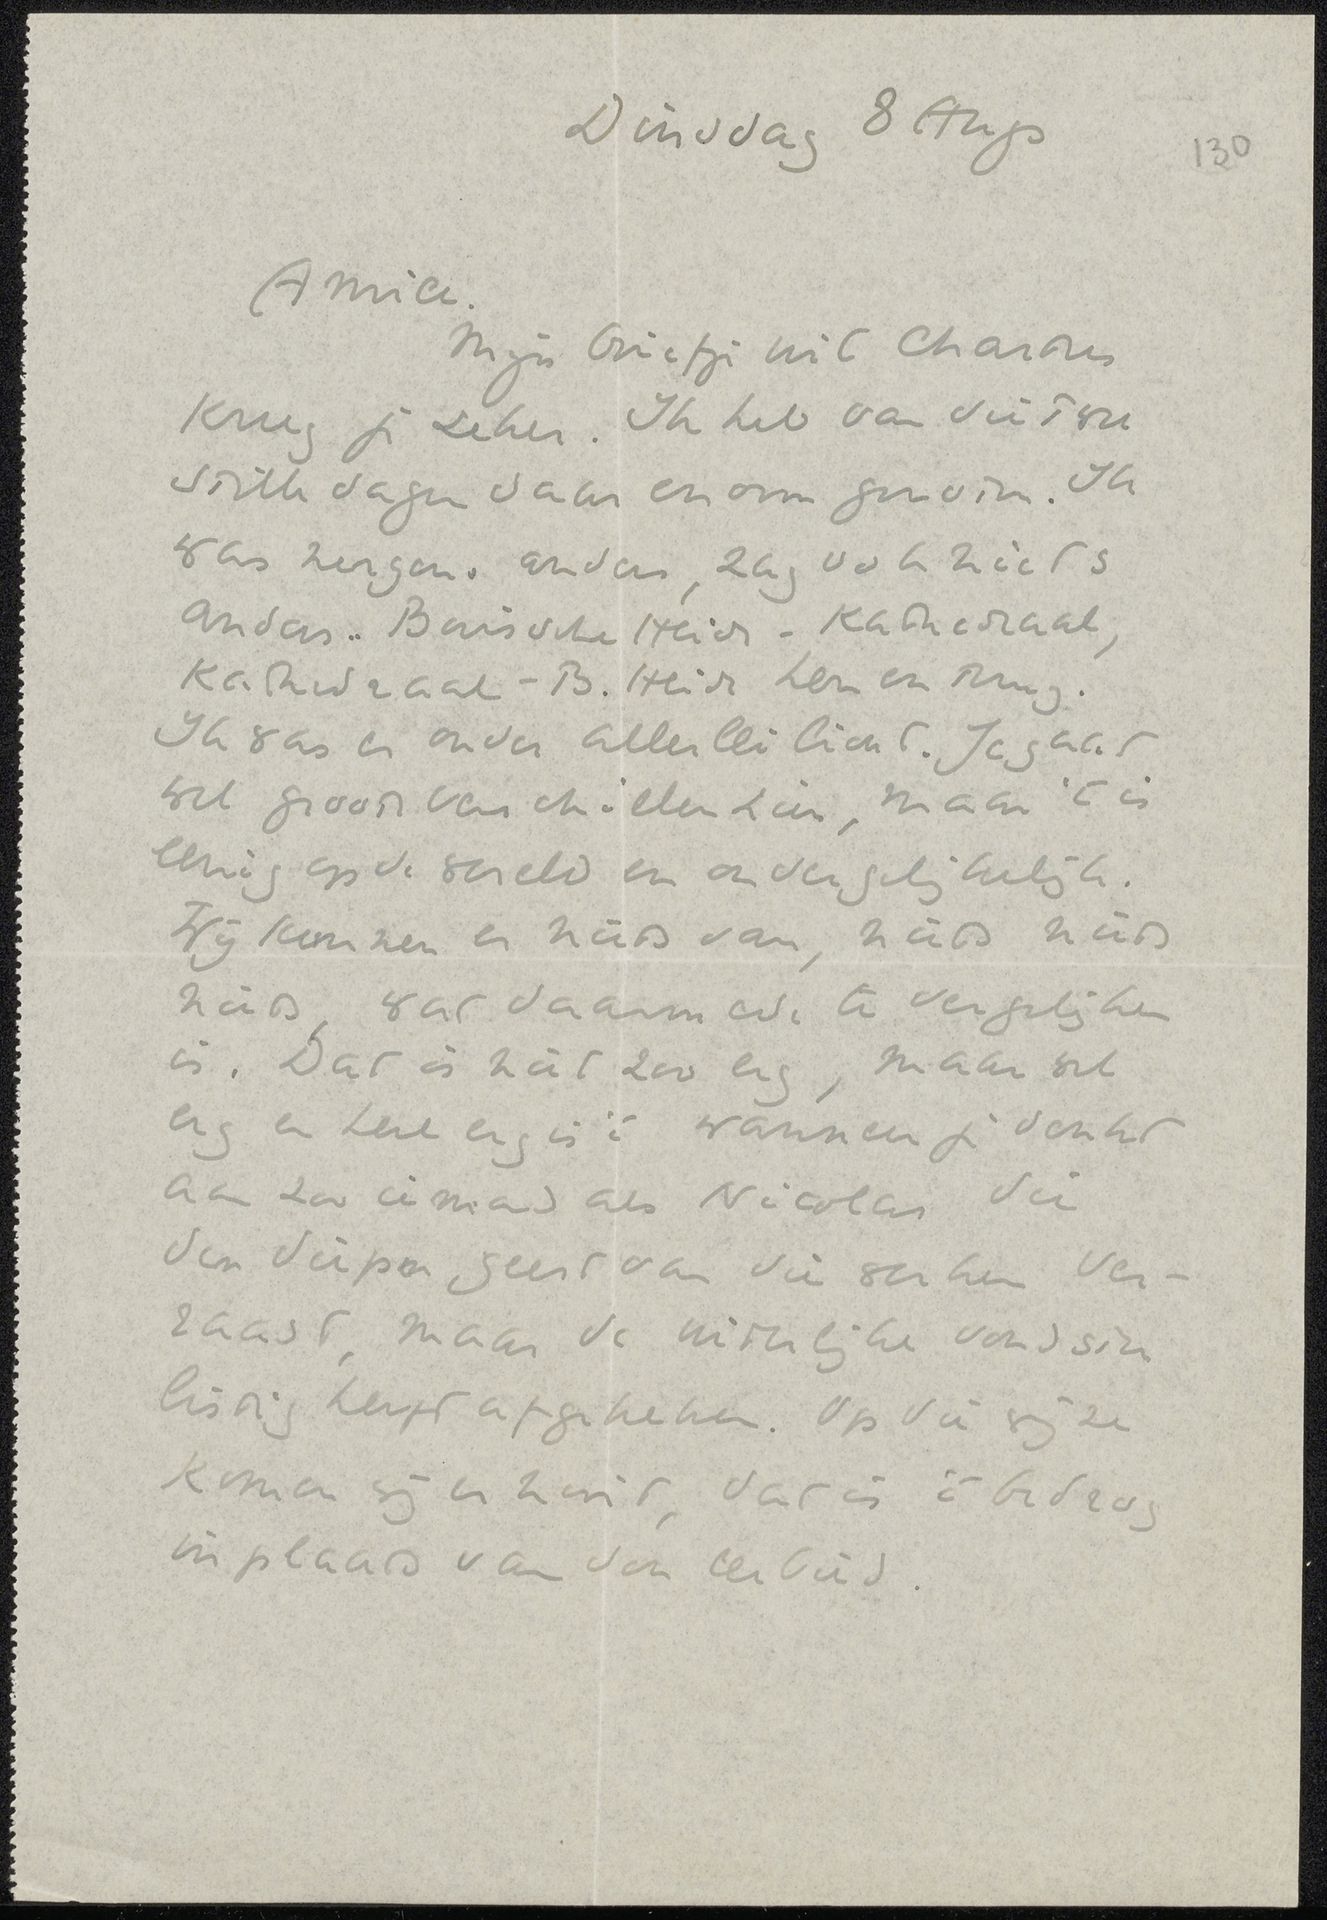 Dinsdag 8 Aug
130
Amice.
Mijn briefje uit Chartres
kreeg je zeker. Ik heb van die twee
stille dagen daar enorm genoten. Ik
was nergens anders, zag ook niets
anders. Heide - Kathedraal,
Kathedraal - B. Heide heen en terug.
Ik was er onder allerlei licht. Je gaat
wel groote verschillen zien, maar 't is
eenig op de wereld en onvergelijkelijk.
Wij kennen er niets van, niets niets
niets, wat daarmede te vergelijken
is. Dat is niet zoo erg, maar wel
erg en heel erg is 't wanneer je denkt
aan zoo iemand als Nicolas die
den diepen geest van die werken ver-
zaast, maar de uiterlijke
listig heeft afgekeken. Op die wijze
komen wij er nooit, dat is 't bedrog
in plaats van den eerbied.